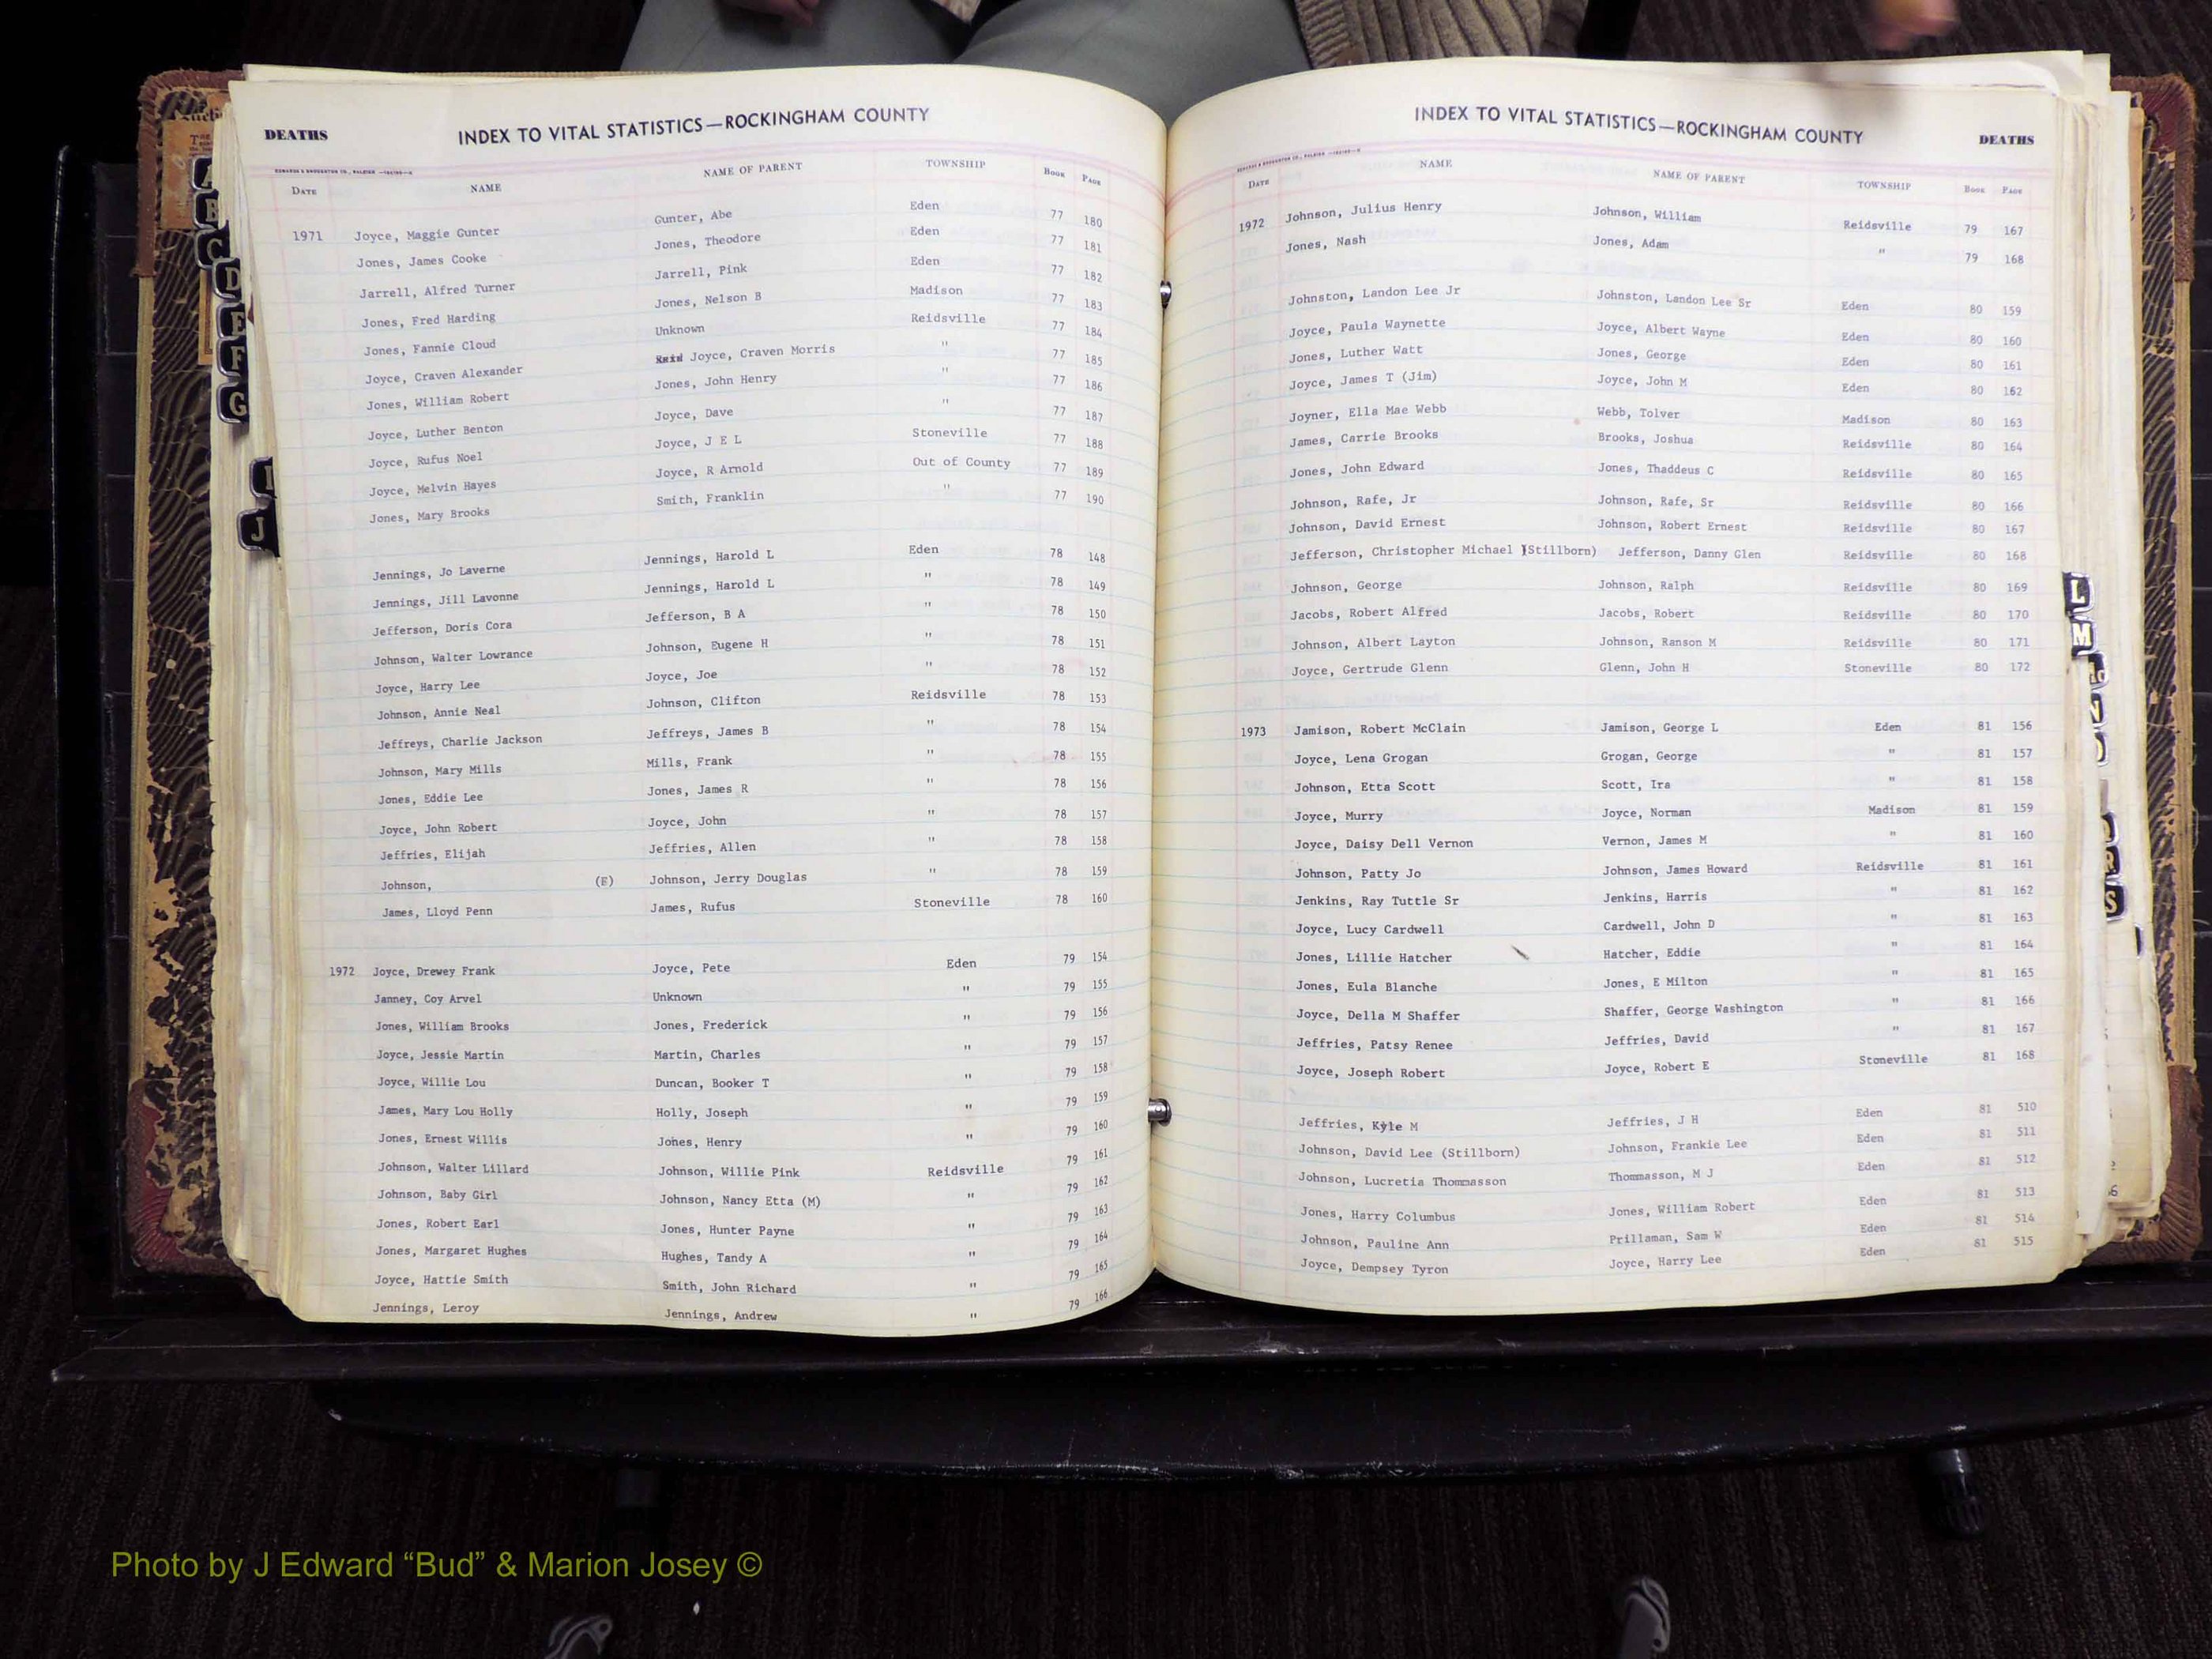 DEATHS
INDEX TO VITAL STATISTICS—ROCKINGHAM COUNTY
DATE NAME NAME OF PARENT TOWNSHIP BOOK PAGE
1971 Joyce, Maggie Gunter Gunter, Abe Eden 77 180
Jones, James Cooke Jones, Theodore Eden 77 181
Jarrell, Alfred Turner Jarrell, Pink Eden 77 182
Jones, Fred Harding Jones, Nelson B Madison 77 183
Jones, Fannie Cloud Unknown Reidsville 77 184
Joyce, Craven Alexander Joyce, Craven Morris " 77 185
Jones, William Robert Jones, John Henry " 77 186
Joyce, Luther Benton Joyce, Dave " 77 187
Joyce, Rufus Noel Joyce, J E L Stoneville 77 188
Joyce, Melvin Hayes Joyce, R Arnold Out of County 77 189
Jones, Mary Brooks Smith, Franklin " 77 190
Jennings, Jo Laverne Jennings, Harold L Eden 78 148
Jennings, Jill Lavonne Jennings, Harold L " 78 149
Jefferson, Doris Cora Jefferson, B A " 78 150
Johnson, Walter Lowrance Johnson, Eugene H " 78 151
Joyce, Harry Lee Joyce, Joe " 78 152
Johnson, Annie Neal Johnson, Clifton Reidsville 78 153
Jeffreys, Charlie Jackson Jeffreys, James B " 78 154
Johnson, Mary Mills Mills, Frank " 78 155
Jones, Eddie Lee Jones, James R " 78 156
Joyce, John Robert Joyce, John " 78 157
Jeffries, Elijah Jeffries, Allen " 78 158
Johnson, (F) Johnson, Jerry Douglas " 78 159
James, Lloyd Penn James, Rufus Stoneville 78 160
1972 Joyce, Drewey Frank Joyce, Pete Eden 79 154
Janney, Coy Arvel Unknown " 79 155
Jones, William Brooks Jones, Frederick " 79 156
Joyce, Jessie Martin Martin, Charles " 79 157
Joyce, Willie Lou Duncan, Booker T " 79 158
James, Mary Lou Holly Holly, Joseph " 79 159
Jones, Ernest Willis Johes, Henry " 79 160
Johnson, Walter Lillard Johnson, Willie Pink Reidsville 79 161
Johnson, Baby Girl Johnson, Nancy Etta (M) " 79 162
Jones, Robert Earl Jones, Hunter Payne " 79 163
Jones, Margaret Hughes Hughes, Tandy A " 79 164
Joyce, Hattie Smith Smith, John Richard " 79 165
Jennings, Leroy Jennings, Andrew " 79 166
INDEX TO VITAL STATISTICS—ROCKINGHAM COUNTY
DEATHS
DATE NAME NAME OF PARENT TOWNSHIP BOOK PAGE
1972 Johnson, Julius Henry Johnson, William Reidsville 79 167
Jones, Nash Jones, Adam " 79 168
Johnston, Landon Lee Jr Johnston, Landon Lee Sr Eden 80 159
Joyce, Paula Waynette Joyce, Albert Wayne Eden 80 160
Jones, Luther Watt Jones, George Eden 80 161
Joyce, James T (Jim) Joyce, John M Eden 80 162
Joyner, Ella Mae Webb Webb, Tolver Madison 80 163
James, Carrie Brooks Brooks, Joshua Reidsville 80 164
Jones, John Edward Jones, Thaddeus C Reidsville 80 165
Johnson, Rafe, Jr Johnson, Rafe, Sr Reidsville 80 166
Johnson, David Ernest Johnson, Robert Ernest Reidsville 80 167
Jefferson, Christopher Michael (Stillborn) Jefferson, Danny Glen Reidsville 80 168
Johnson, George Johnson, Ralph Reidsville 80 169
Jacobs, Robert Alfred Jacobs, Robert Reidsville 80 170
Johnson, Albert Layton Johnson, Ranson M Reidsville 80 171
Joyce, Gertrude Glenn Glenn, John H Stoneville 80 172
1973 Jamison, Robert McClain Jamison, George L Eden 81 156
Joyce, Lena Grogan Grogan, George " 81 157
Johnson, Etta Scott Scott, Ira " 81 158
Joyce, Murry Joyce, Norman Madison 81 159
Joyce, Daisy Dell Vernon Vernon, James M " 81 160
Johnson, Patty Jo Johnson, James Howard Reidsville 81 161
Jenkins, Ray Tuttle Sr Jenkins, Harris " 81 162
Joyce, Lucy Cardwell Cardwell, John D " 81 163
Jones, Lillie Hatcher Hatcher, Eddie " 81 164
Jones, Eula Blanche Jones, E Milton " 81 165
Joyce, Della M Shaffer Shaffer, George Washington " 81 166
Jeffries, Patsy Renee Jeffries, David " 81 167
Joyce, Joseph Robert Joyce, Robert E Stoneville 81 168
Jeffries, Kyle M Jeffries, J H Eden 81 510
Johnson, David Lee (Stillborn) Johnson, Frankie Lee Eden 81 511
Johnson, Lucretia Thommasson Thommasson, M J Eden 81 512
Jones, Harry Columbus Jones, William Robert Eden 81 513
Johnson, Pauline Ann Prillaman, Sam W Eden 81 514
Joyce, Dempsey Tyron Joyce, Harry Lee Eden 81 515
A
B
C
D
E
F
G
I
J
L
M
N
R
S
Photo by J Edward “Bud” & Marion Josey ©